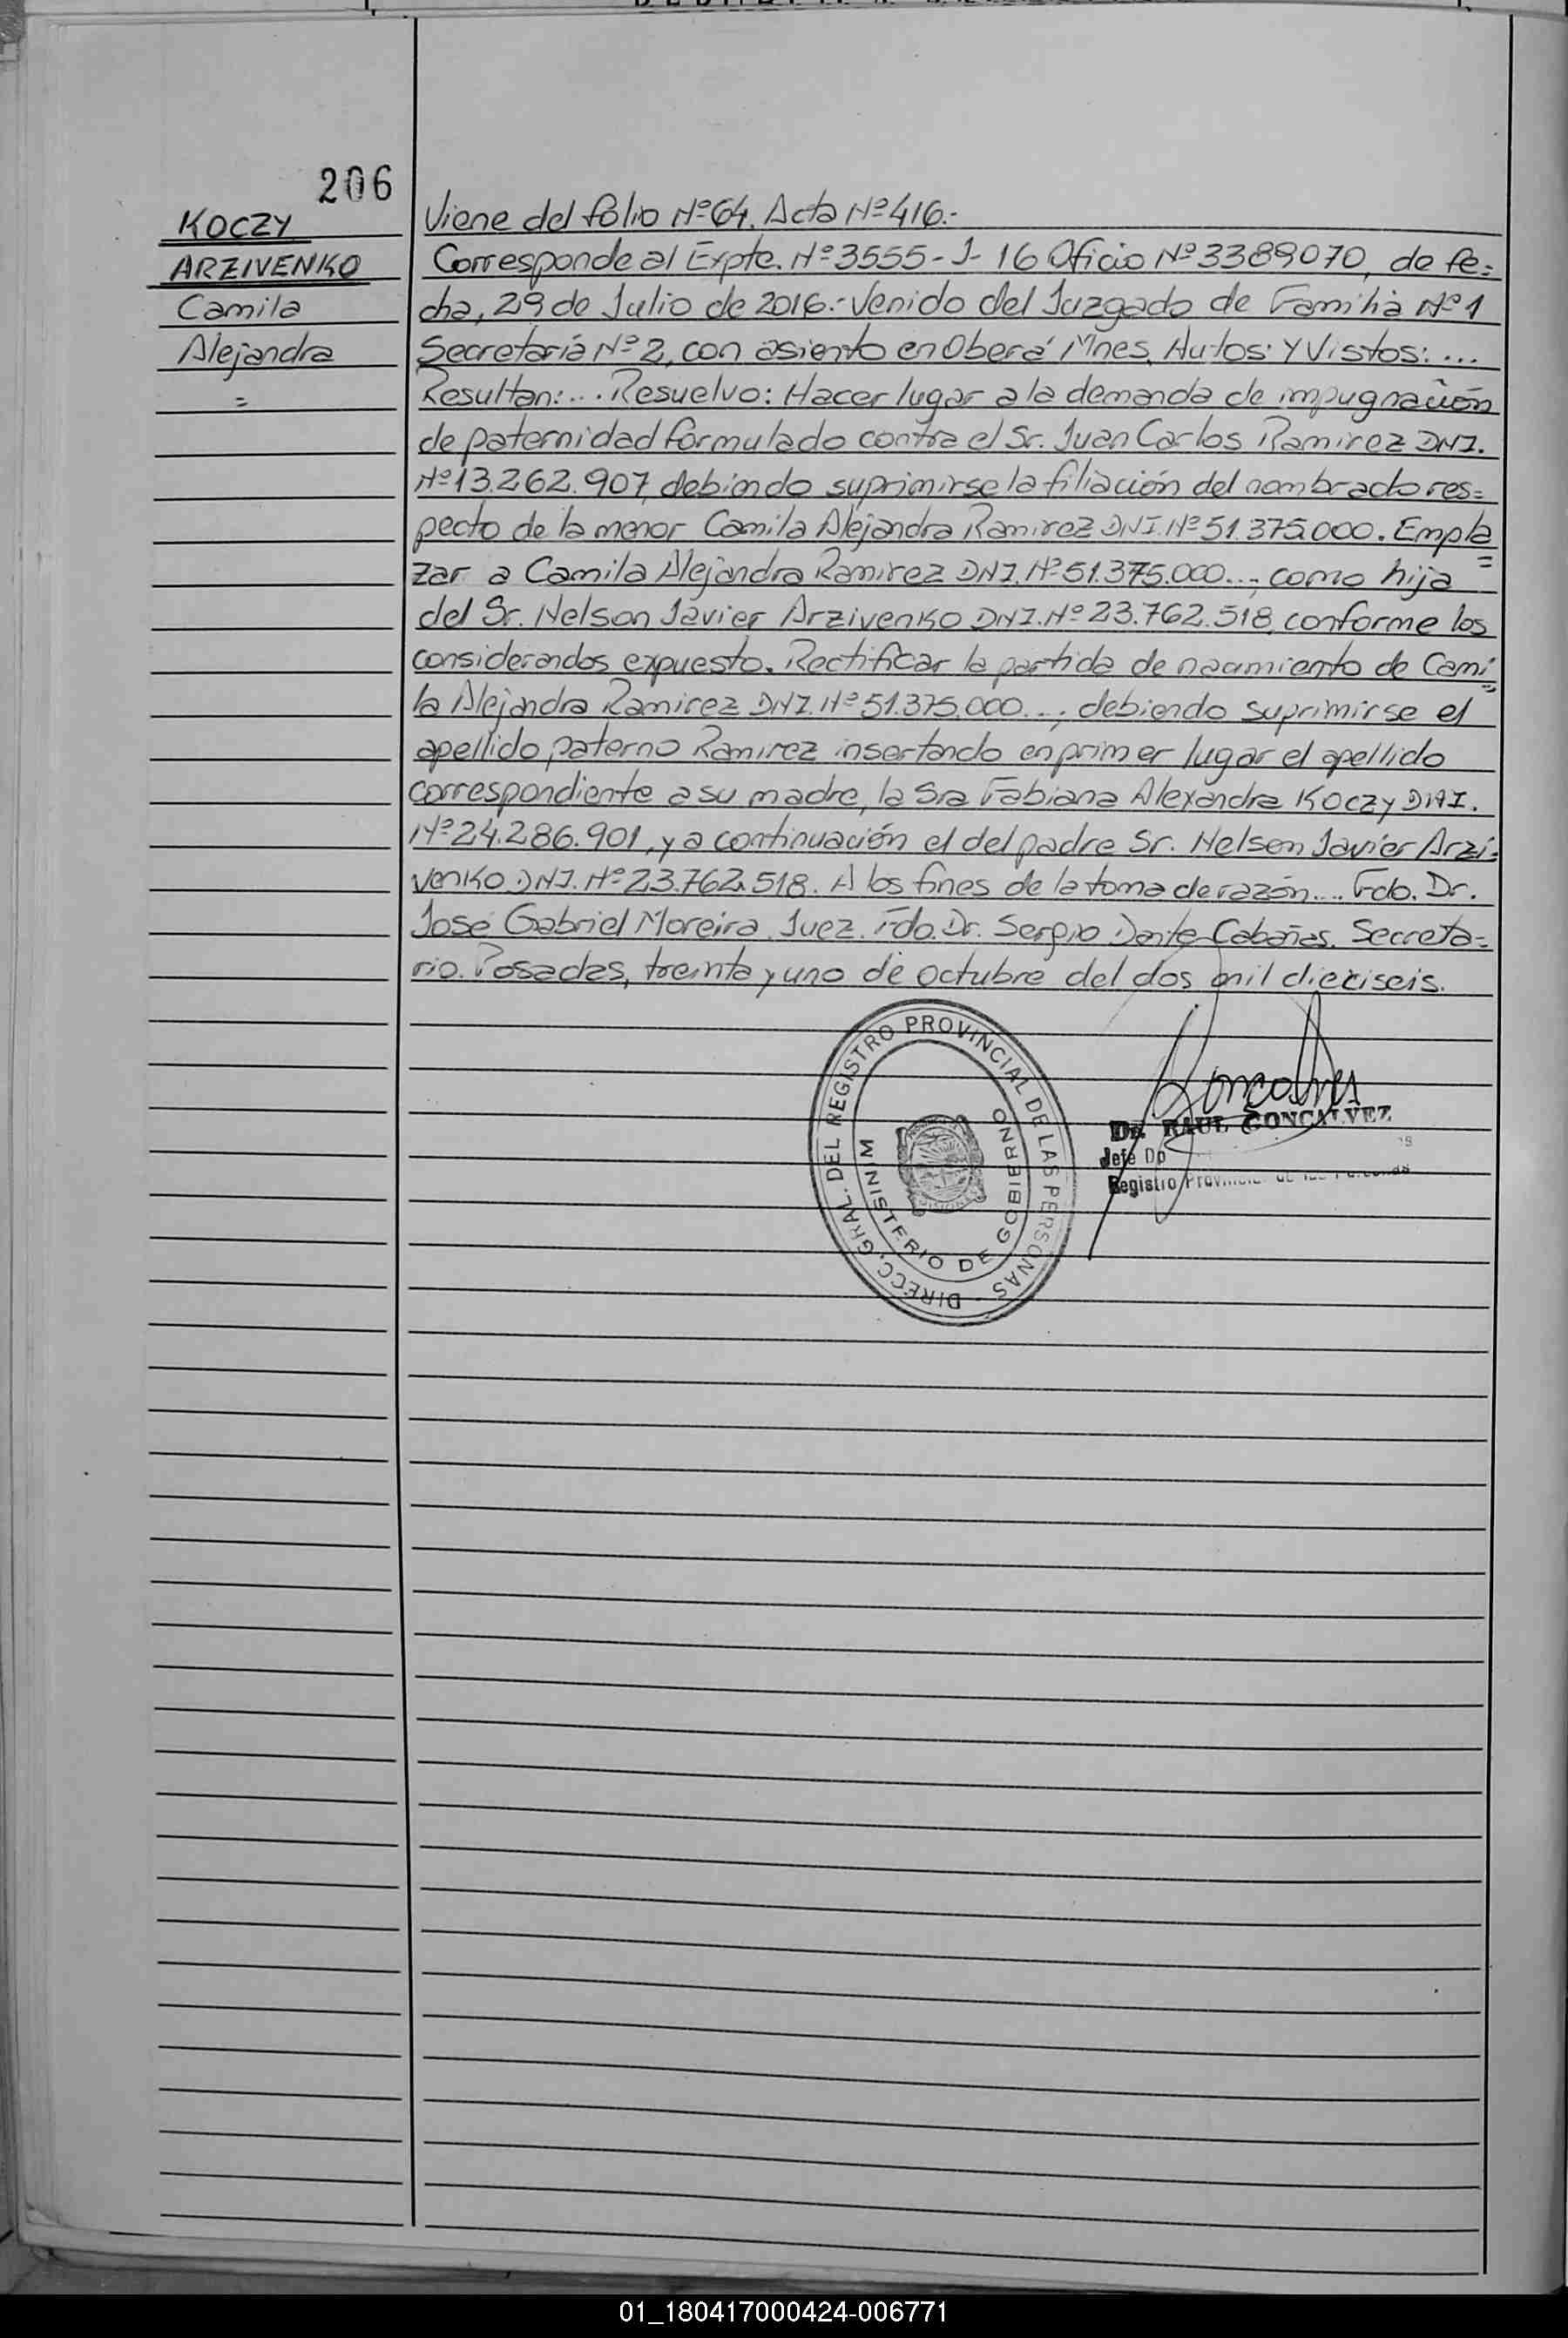 206
KOCZY
ARZIVENKO
Camila
Alejandra
=
Viene del folio Nº 64. Acta Nº 416.-
Corresponde al Expte. Nº 3555-J-16 Oficio Nº 3389070, de fe=
cha, 29 de Julio de 2016.- Venido del Juzgado de Familia Nº 1
Secretaría Nº 2, con asiento en Oberá Mnes. Autos: Y Vistos:...
Resultan:... Resuelvo: Hacer lugar a la demanda de impugnación
de paternidad formulado contra el Sr. Juan Carlos Ramirez DNI.
Nº 13.262.907, debiendo suprimirse la filiación del nombrado res=
pecto de la menor Camila Alejandra Ramirez DNI. Nº 51.375.000. Empla=
zar a Camila Alejandra Ramirez DNI. Nº 51.375.000..., como hija
del Sr. Nelson Javier Arzivenko DNI. Nº 23.762.518, conforme los
considerandos expuesto. Rectificar la partida de nacimiento de Cami=
la Alejandra Ramirez DNI. Nº 51.375.000..., debiendo suprimirse el
apellido paterno Ramirez insertando en primer lugar el apellido
correspondiente a su madre, la Sra Fabiana Alexandra Koczy DNI.
Nº 24.286.901, y a continuación el del padre Sr. Nelson Javier Arzi=
venko DNI. Nº 23.762.518. A los fines de la toma de razón.... Fdo. Dr.
José Gabriel Moreira. Juez. Fdo. Dr. Sergio Dante Cabañas. Secreta=
rio. Posadas, treinta y uno de octubre del dos mil dieciseis.
DIRECC. GRAL. DEL REGISTRO PROVINCIAL DE LAS PERSONAS
MINISTERIO DE GOBIERNO
Goncalves
Dr. RAUL GONCALVEZ
Jefe Dp
Registro Provincial de las Personas
01_180417000424-006771